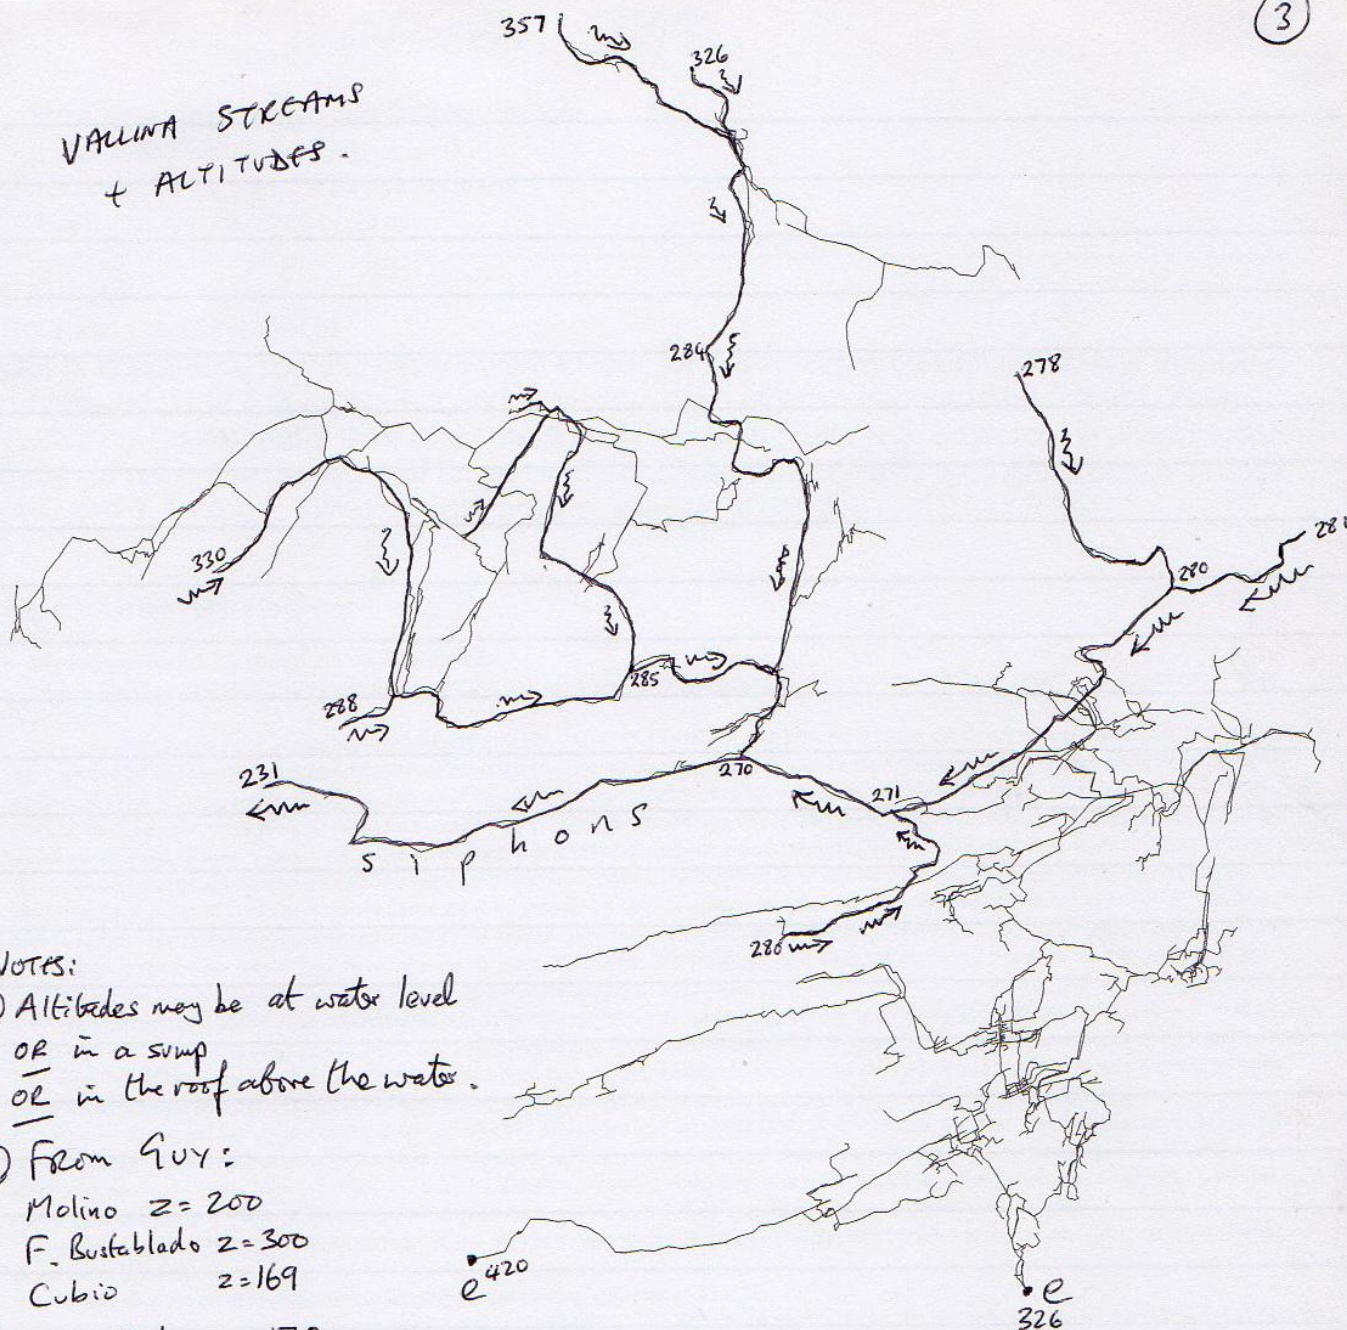 3
357
326
VALLINA STREAMS
+ ALTITUDES.
284
278
330
280
285
288
231
270
271
siphons
286
NOTES:
) Altitudes may be at water level
OR in a sump
OR in the roof above the water.
) From Guy:
Molino z=200
F. Bustablado z=300
Cubio z=169
e 420
e
326